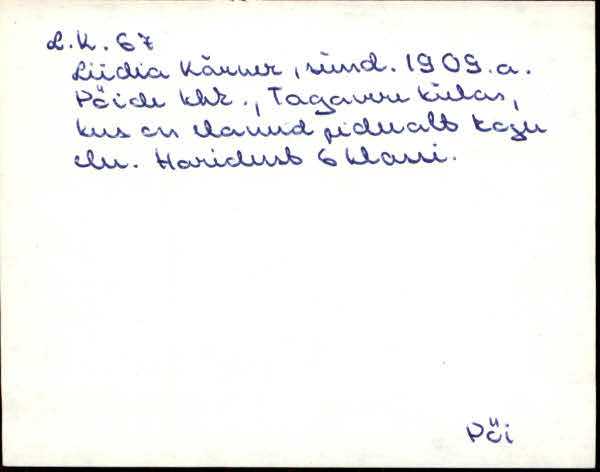 L.K. 67
Liidia Kärner, sünd. 1909. a.
Pöide khk., Tagavere külas,
kus on elanud pidevalt kogu
elu. Haridust 6 klassi.
Pöi